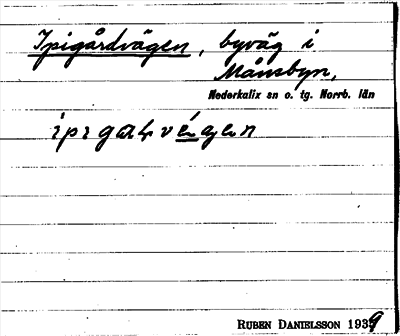 Ipigårdvägen, byväg i
Månsbyn,
Nederkalix sn o. tg. Norrb. län
RUBEN DANIELSSON 1939